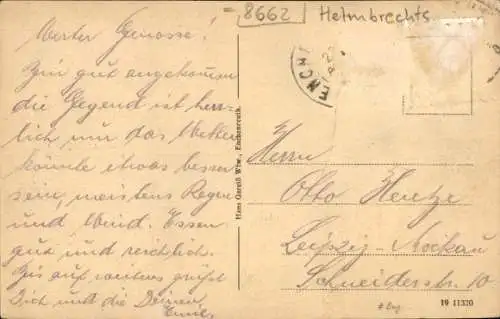 8662 Helmbrechts
Werter Genosse!
Bin gut angekommen
die Gegend ist herr-
lich nur das Wetter
könnte etwas besser
sein, meistens Regen
und Wind. Essen
gut und reichlich.
Bis auf weiteres grüßt
Dich und die Deinen
Emil.
Hans Garniß Wtw., Enchenreuth.
ENCH
Herrn
Otto Hentze
Leipzig-Mockau
Schneiderstr. 10
19 11320